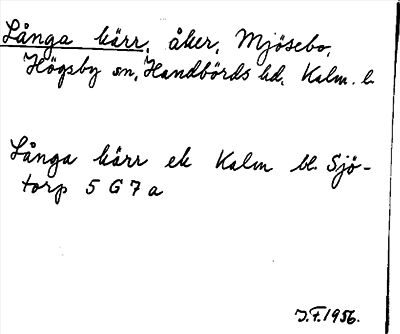 Långa kärr, åker, Mjösebo,
Högsby sn, Handbörds hd, Kalm. l.
Långa kärr ek Kalm bl. Sjö-
torp 5 G 7 a
J.F. 1956.